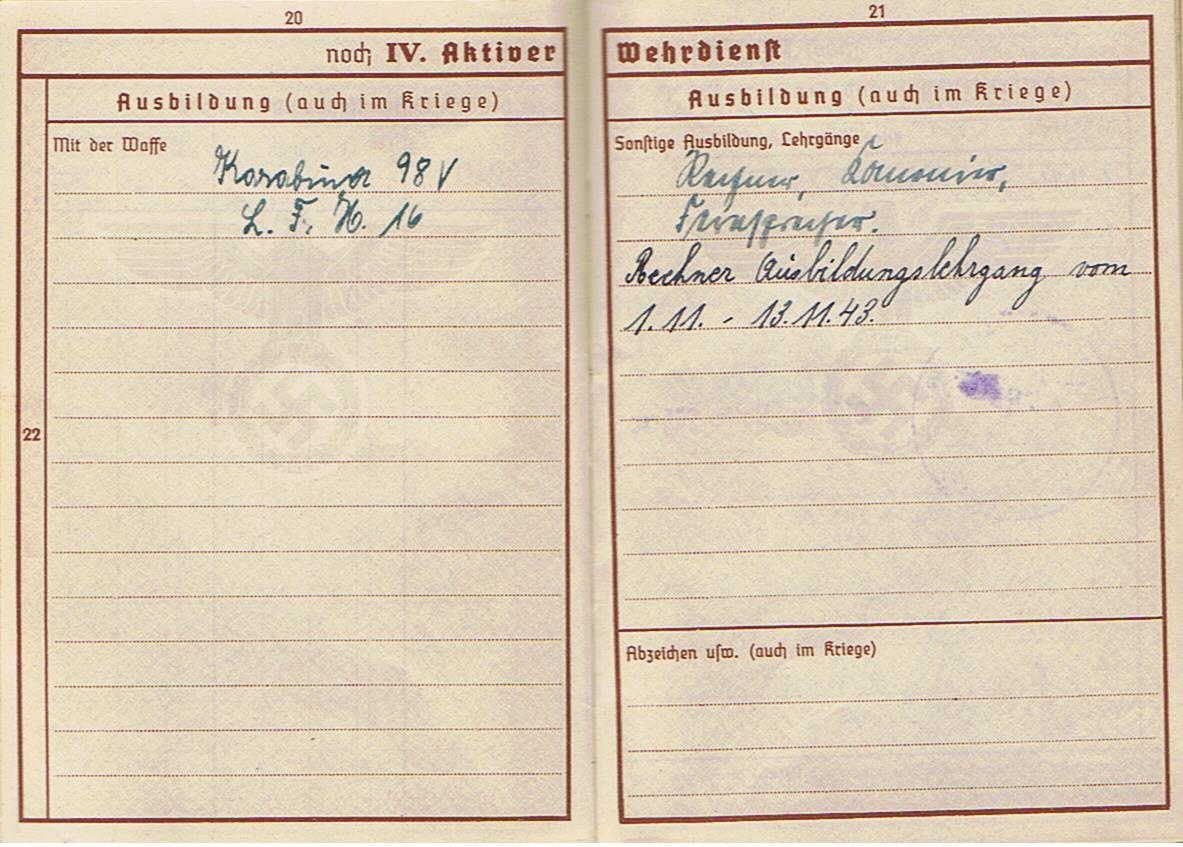 20
noch IV. Aktiver
Ausbildung (auch im Kriege)
Mit der Waffe
Karabiner 98
L. F. H. 16
22
21
Wehrdienst
Ausbildung (auch im Kriege)
Sonstige Ausbildung, Lehrgänge
Rechner, Kanonier,
Fernsprecher.
Rechner Ausbildungslehrgang vom
1.11. - 13.11.43.
Abzeichen usw. (auch im Kriege)